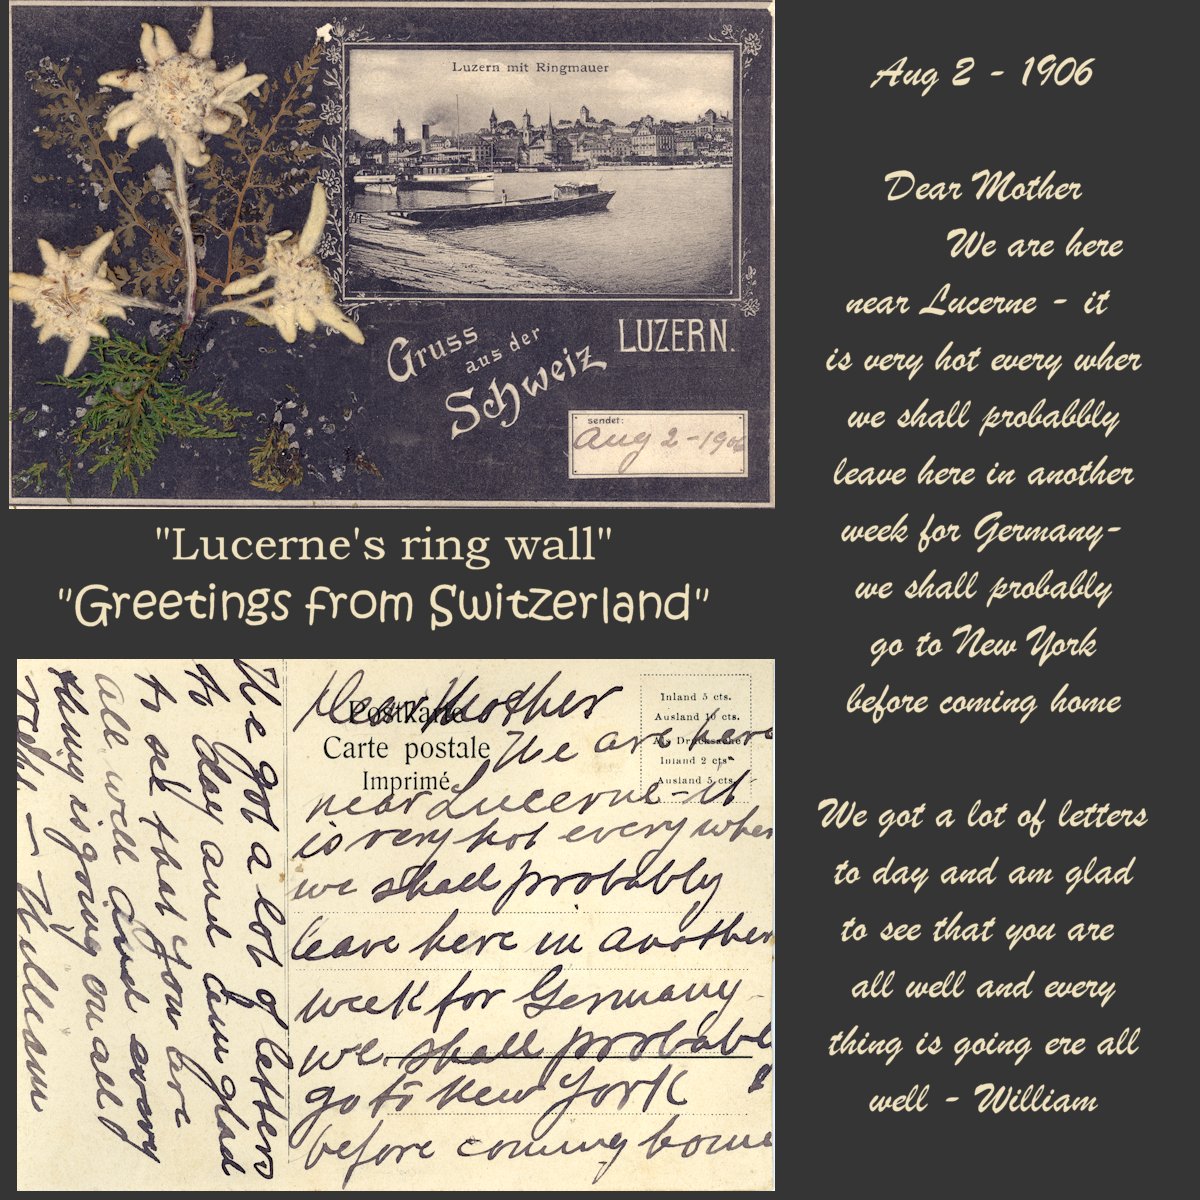 Luzern mit Ringmauer
Gruss
aus der
Schweiz
LUZERN.
sendet:
Aug 2 - 1906
"Lucerne's ring wall"
"Greetings from Switzerland"
Postkarte
Carte postale
Imprimé
Inland 5 cts.
Ausland 10 cts.
Als Drucksache
Inland 2 cts
Ausland 5 cts.
Dear Mother
We are here
near Lucerne - it
is very hot every wher
we shall probably
leave here in another
week for Germany
we shall probabl
y
go to New York
before coming home
We got a lot of letters
to day and am glad
to see that you are
all well and every
thing is going on all
right - William
Aug 2 - 1906
Dear Mother
We are here
near Lucerne - it
is very hot every wher
we shall probabbly
leave here in another
week for Germany-
we shall probably
go to New York
before coming home
We got a lot of letters
to day and am glad
to see that you are
all well and every
thing is going ere all
well - William